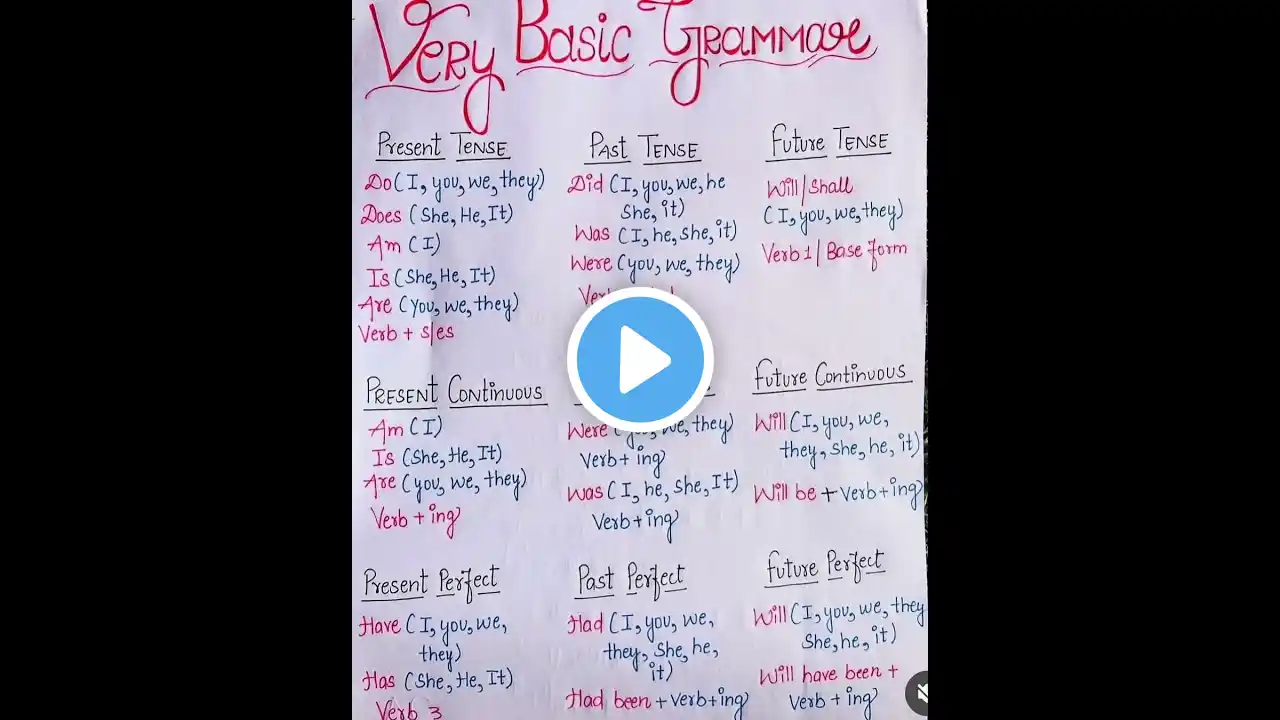 Very Basic Grammar
Present Tense
Do (I, you, we, they)
Does (She, He, It)
Am (I)
Is (She, He, It)
Are (You, we, they)
Verb + s/es
Past Tense
Did (I, you, we, he
She, it)
Was (I, he, she, it)
Were (you, we, they)
Future Tense
Will/Shall
(I, you, we, they)
Verb 1 / Base form
Present Continuous
Am (I)
Is (She, He, It)
Are (you, we, they)
Verb + ing
Were (you, we, they)
Verb + ing
Was (I, he, she, It)
Verb + ing
Future Continuous
Will (I, you, we,
they, she, he, it)
Will be + verb + ing
Present Perfect
Have (I, you, we,
they)
Has (She, He, It)
Verb 3
Past Perfect
Had (I, you, we,
they, She, he,
it)
Had been + verb+ing
Future Perfect
Will (I, you, we, they
She, he, it)
Will have been +
verb + ing